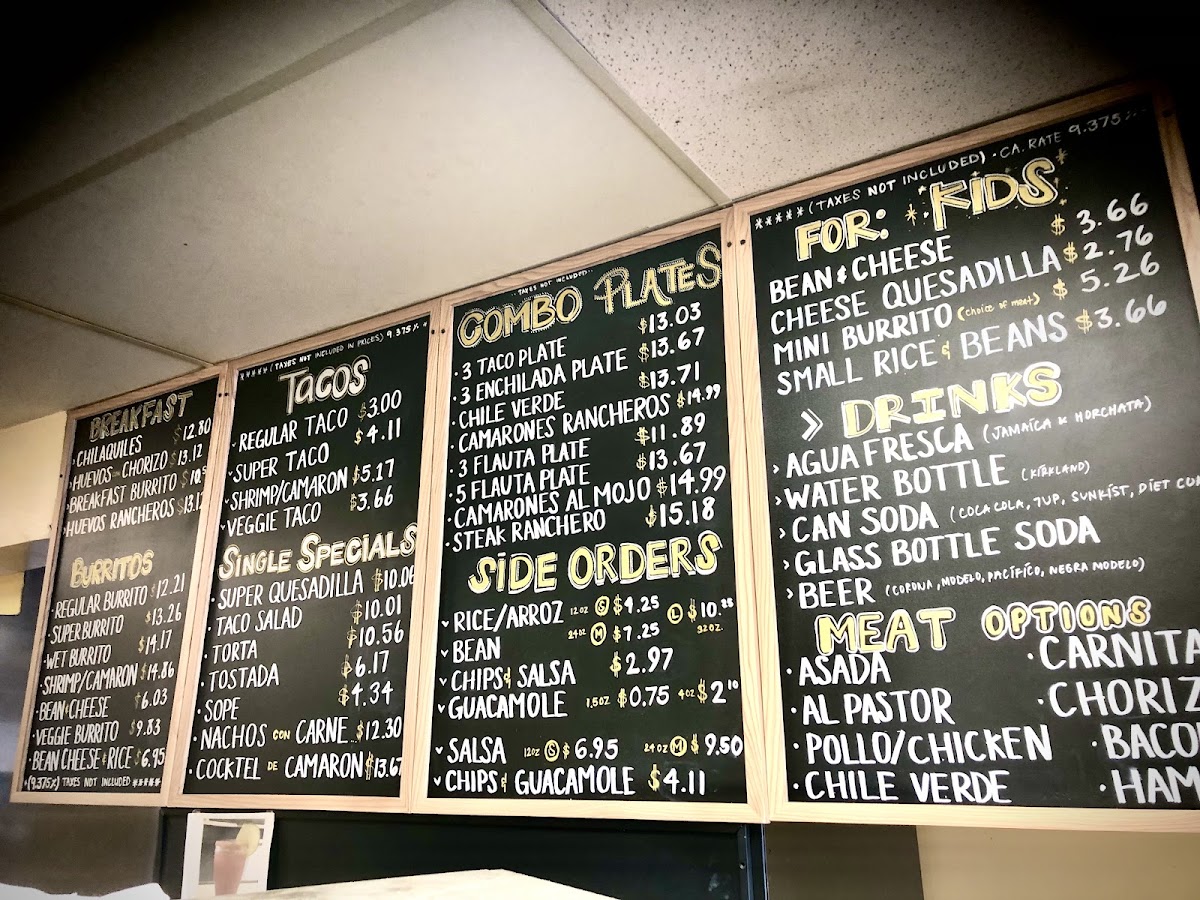 BREAKFAST
CHILAQUILES $12.80
HUEVOS CON CHORIZO $13.12
BREAKFAST BURRITO
HUEVOS RANCHEROS
BURRITOS
REGULAR BURRITO $12.21
SUPER BURRITO $13.26
WET BURRITO $14.17
SHRIMP/CAMARON $14.86
BEAN & CHEESE $6.03
VEGGIE BURRITO $9.83
BEAN CHEESE & RICE $6.95
*(9.375%) TAXES NOT INCLUDED *****
***** (TAXES NOT INCLUDED IN PRICES) 9.375% *
TACOS
REGULAR TACO $3.00
SUPER TACO $4.11
SHRIMP/CAMARON $5.17
VEGGIE TACO $3.66
SINGLE SPECIALS
SUPER QUESADILLA $10.06
TACO SALAD $10.01
TORTA $10.56
TOSTADA $6.17
SOPE $4.34
NACHOS CON CARNE... $12.30
COCKTEL DE CAMARON $13.67
** TAXES NOT INCLUDED **
COMBO PLATES
3 TACO PLATE $13.03
3 ENCHILADA PLATE $13.67
CHILE VERDE $13.71
CAMARONES RANCHEROS $14.99
3 FLAUTA PLATE $11.89
5 FLAUTA PLATE $13.67
CAMARONES AL MOJO $14.99
STEAK RANCHERO $15.18
SIDE ORDERS
RICE/ARROZ 12OZ (S) $4.25 (L) $10.25
BEAN 24OZ (M) $7.25 32OZ.
CHIPS & SALSA $2.97
GUACAMOLE 1.5OZ $0.75 4OZ $2.10
SALSA 12OZ (S) $6.95 24OZ (M) $9.50
CHIPS & GUACAMOLE $4.11
***** (TAXES NOT INCLUDED) • CA. RATE 9.375%
FOR: KIDS
BEAN & CHEESE $3.66
CHEESE QUESADILLA $2.76
MINI BURRITO (choice of meat) $5.26
SMALL RICE & BEANS $3.66
DRINKS
AGUA FRESCA (JAMAICA & HORCHATA)
WATER BOTTLE (KIRKLAND)
CAN SODA (COCA COLA, 7UP, SUNKIST, DIET
GLASS BOTTLE SODA
BEER (CORONA, MODELO, PACÍFICO, NEGRA MODELO)
MEAT OPTIONS
ASADA CARNITA
AL PASTOR CHORIZ
POLLO/CHICKEN BACO
CHILE VERDE HAM